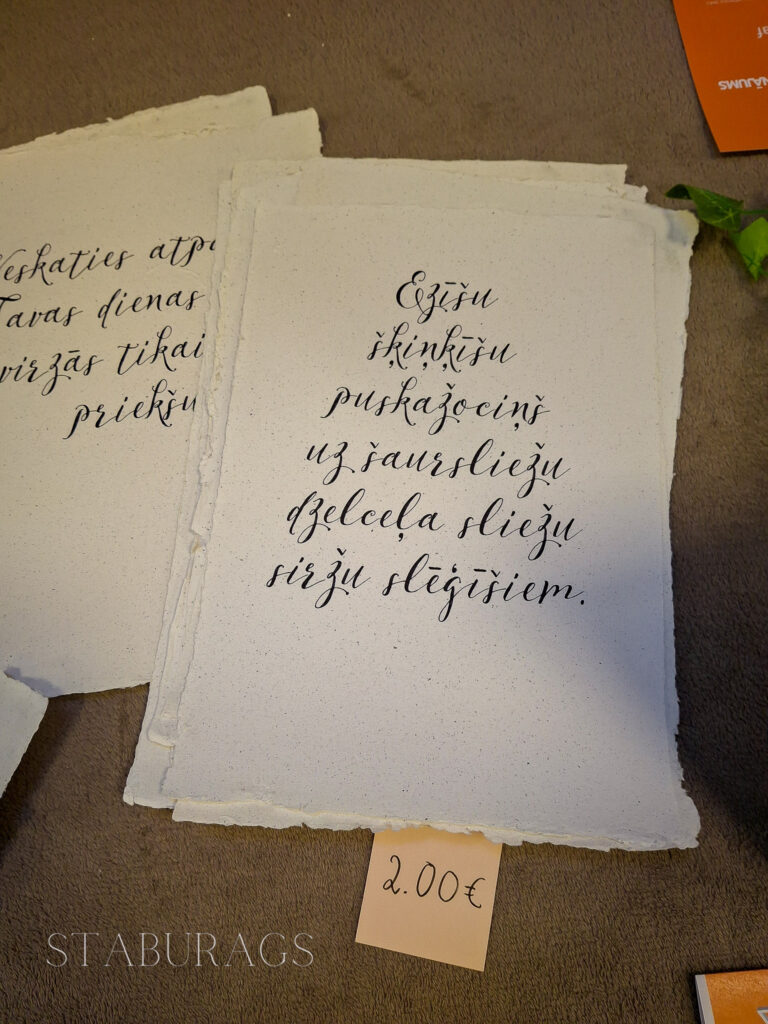 Neskaties
Tavas dienas
virzās tikai
priekšu
Ezīšu
šķiņķīšu
puskažociņš
uz šaursliežu
dzelceļa sliežu
siržu slēģīšiem.
2.00€
STABURAGS
NĀJUMS